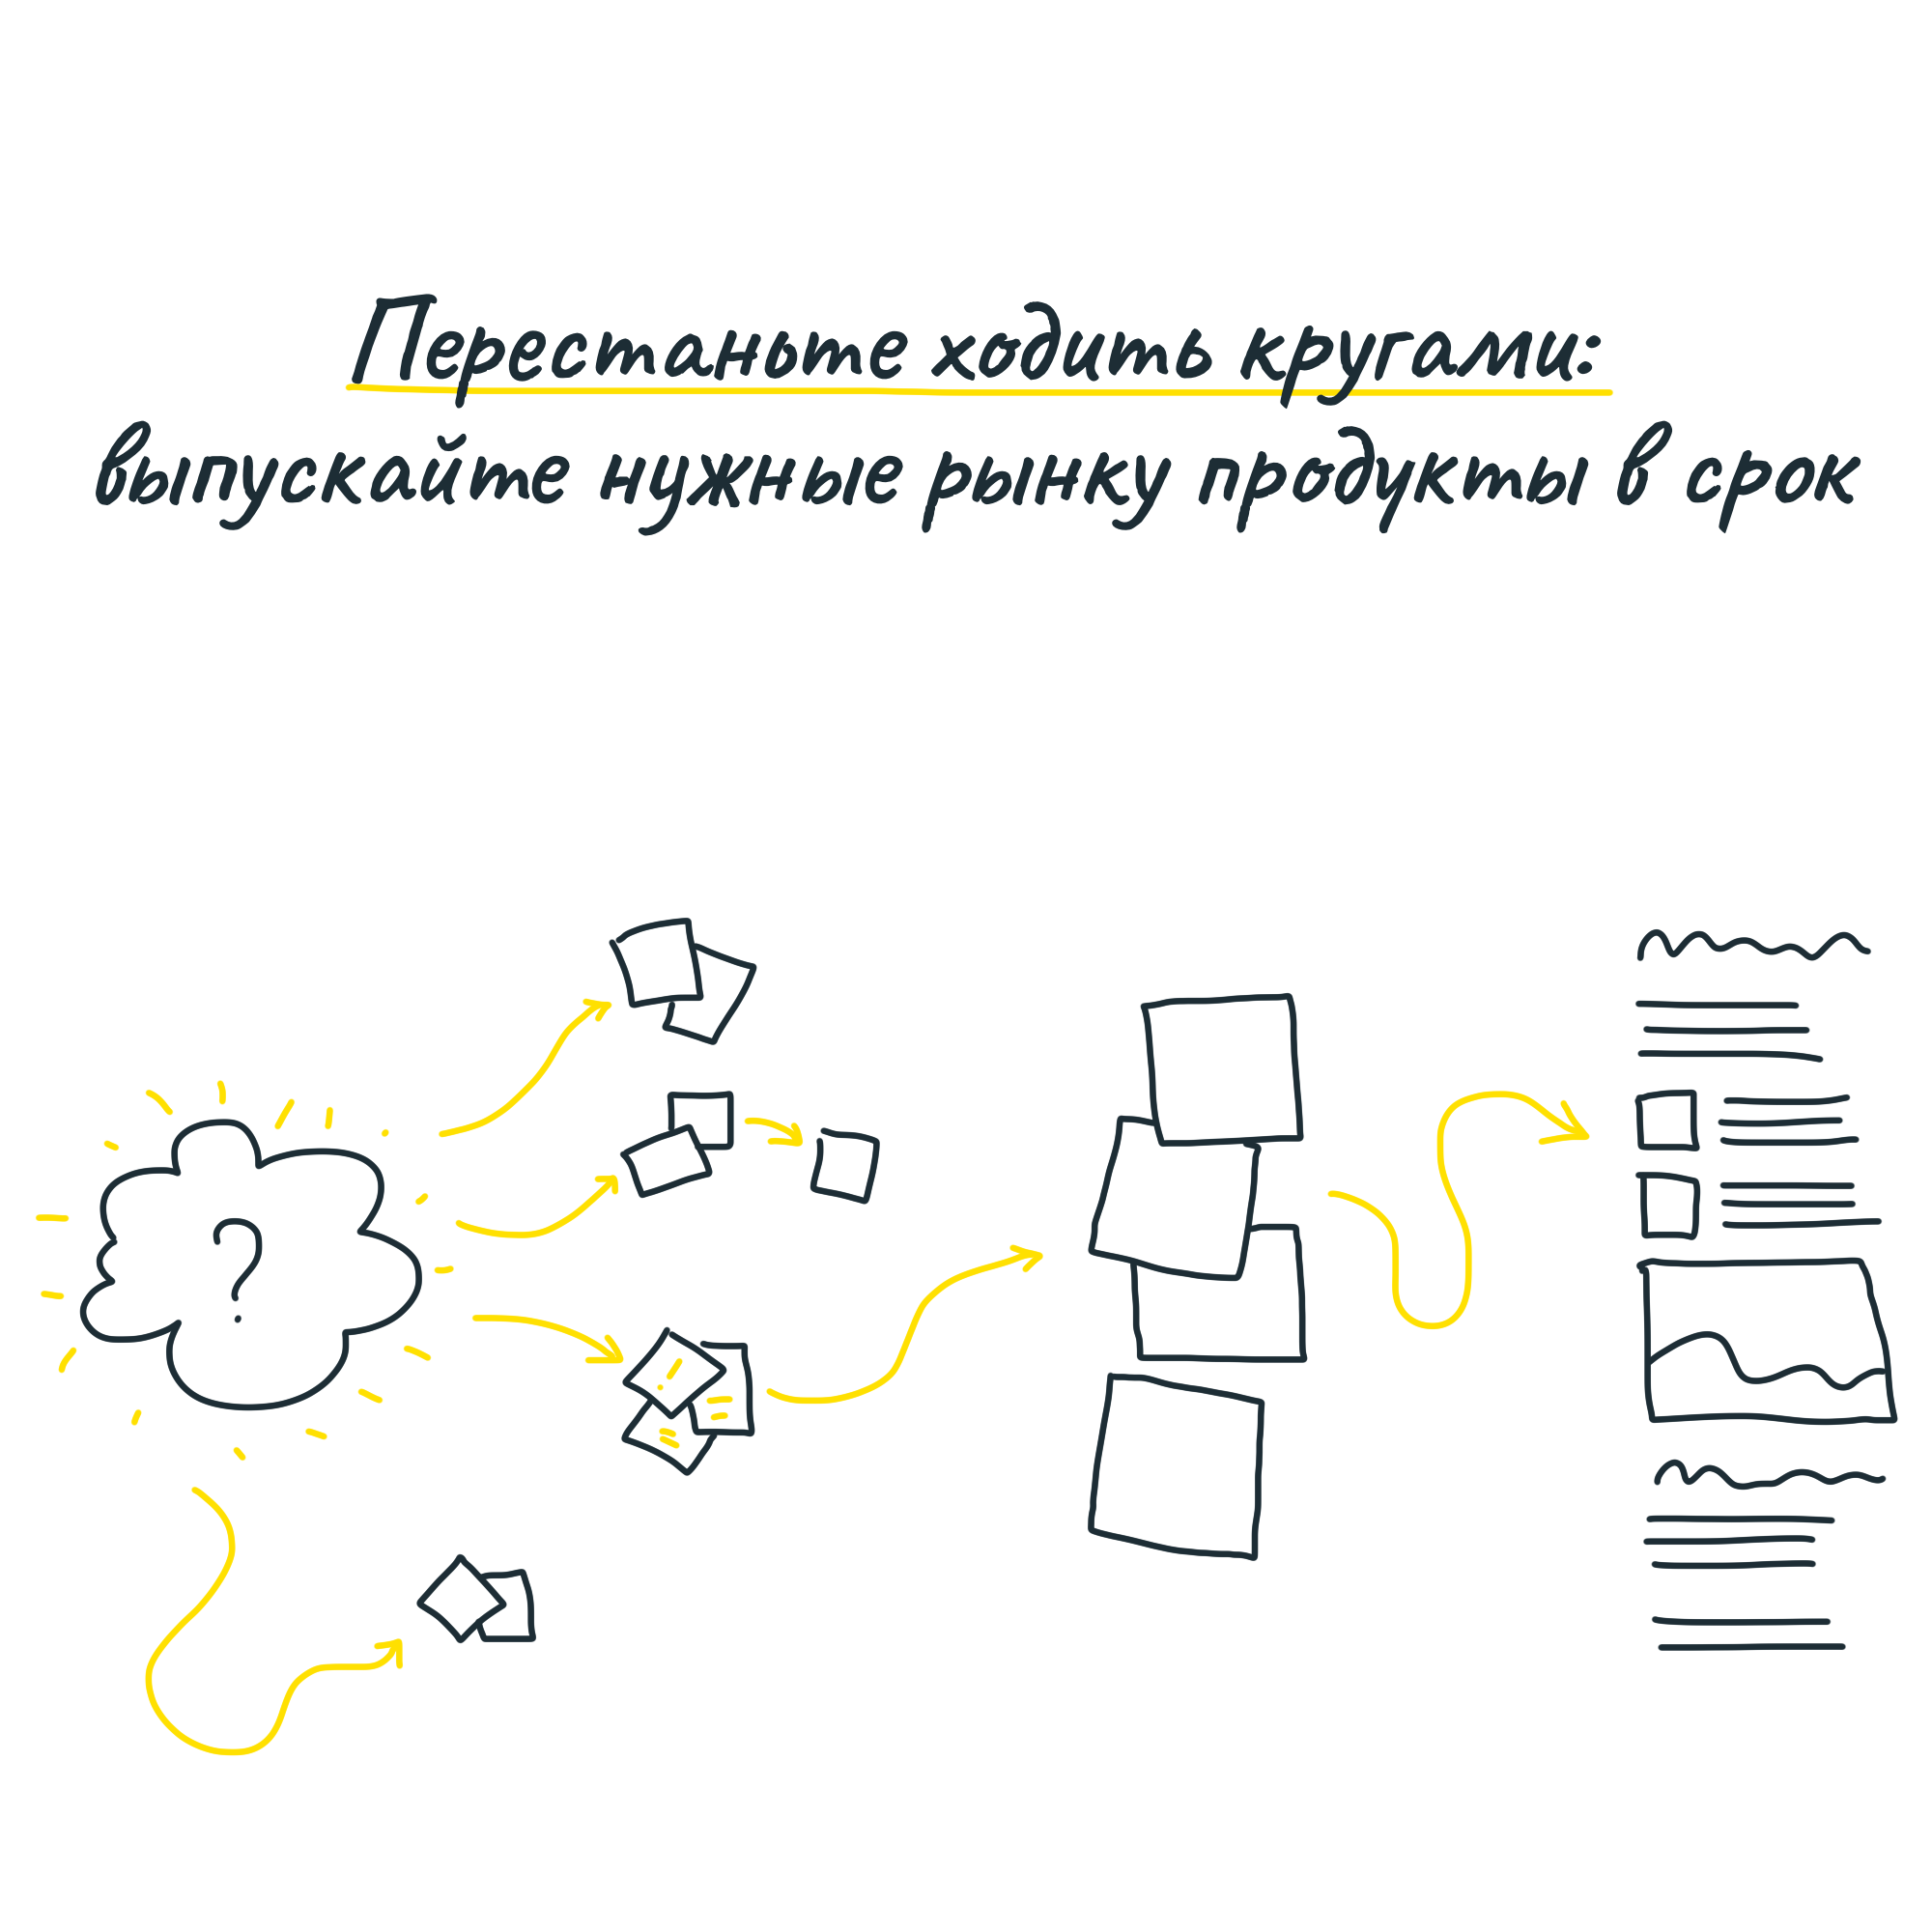 Перестаньте ходить кругами:
выпускайте нужные рынку продукты в срок
?